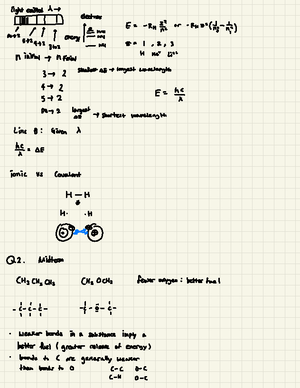 light emitted λ →
electrons
energy
E = -R_H Z²/n² or -R_H Z² (1/n_f² - 1/n_i²)
∞→2 5→2 4→2 3→2
Z = 1, 2, 3
H He⁺ Li²⁺
n initial → n final
3 → 2 smallest ΔE → longest wavelength
4 → 2
5 → 2
E = hc/λ
∞ → 2 largest ΔE → shortest wavelength
Line B: Given λ
hc/λ = ΔE
ionic vs Covalent
H — H
H· ·H
Q2. Midterm
CH₃ CH₂ CH₃ CH₃ OCH₃ fewer oxygen: better fuel
-C-C-C- -C-O-C-
• weaker bonds in a substance imply a
better fuel (greater release of energy)
• bonds to C are generally weaker
than bonds to O C-C O-C
C-H O-C